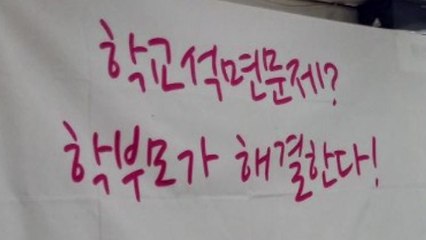 학교석면문제?
학부모가 해결한다!